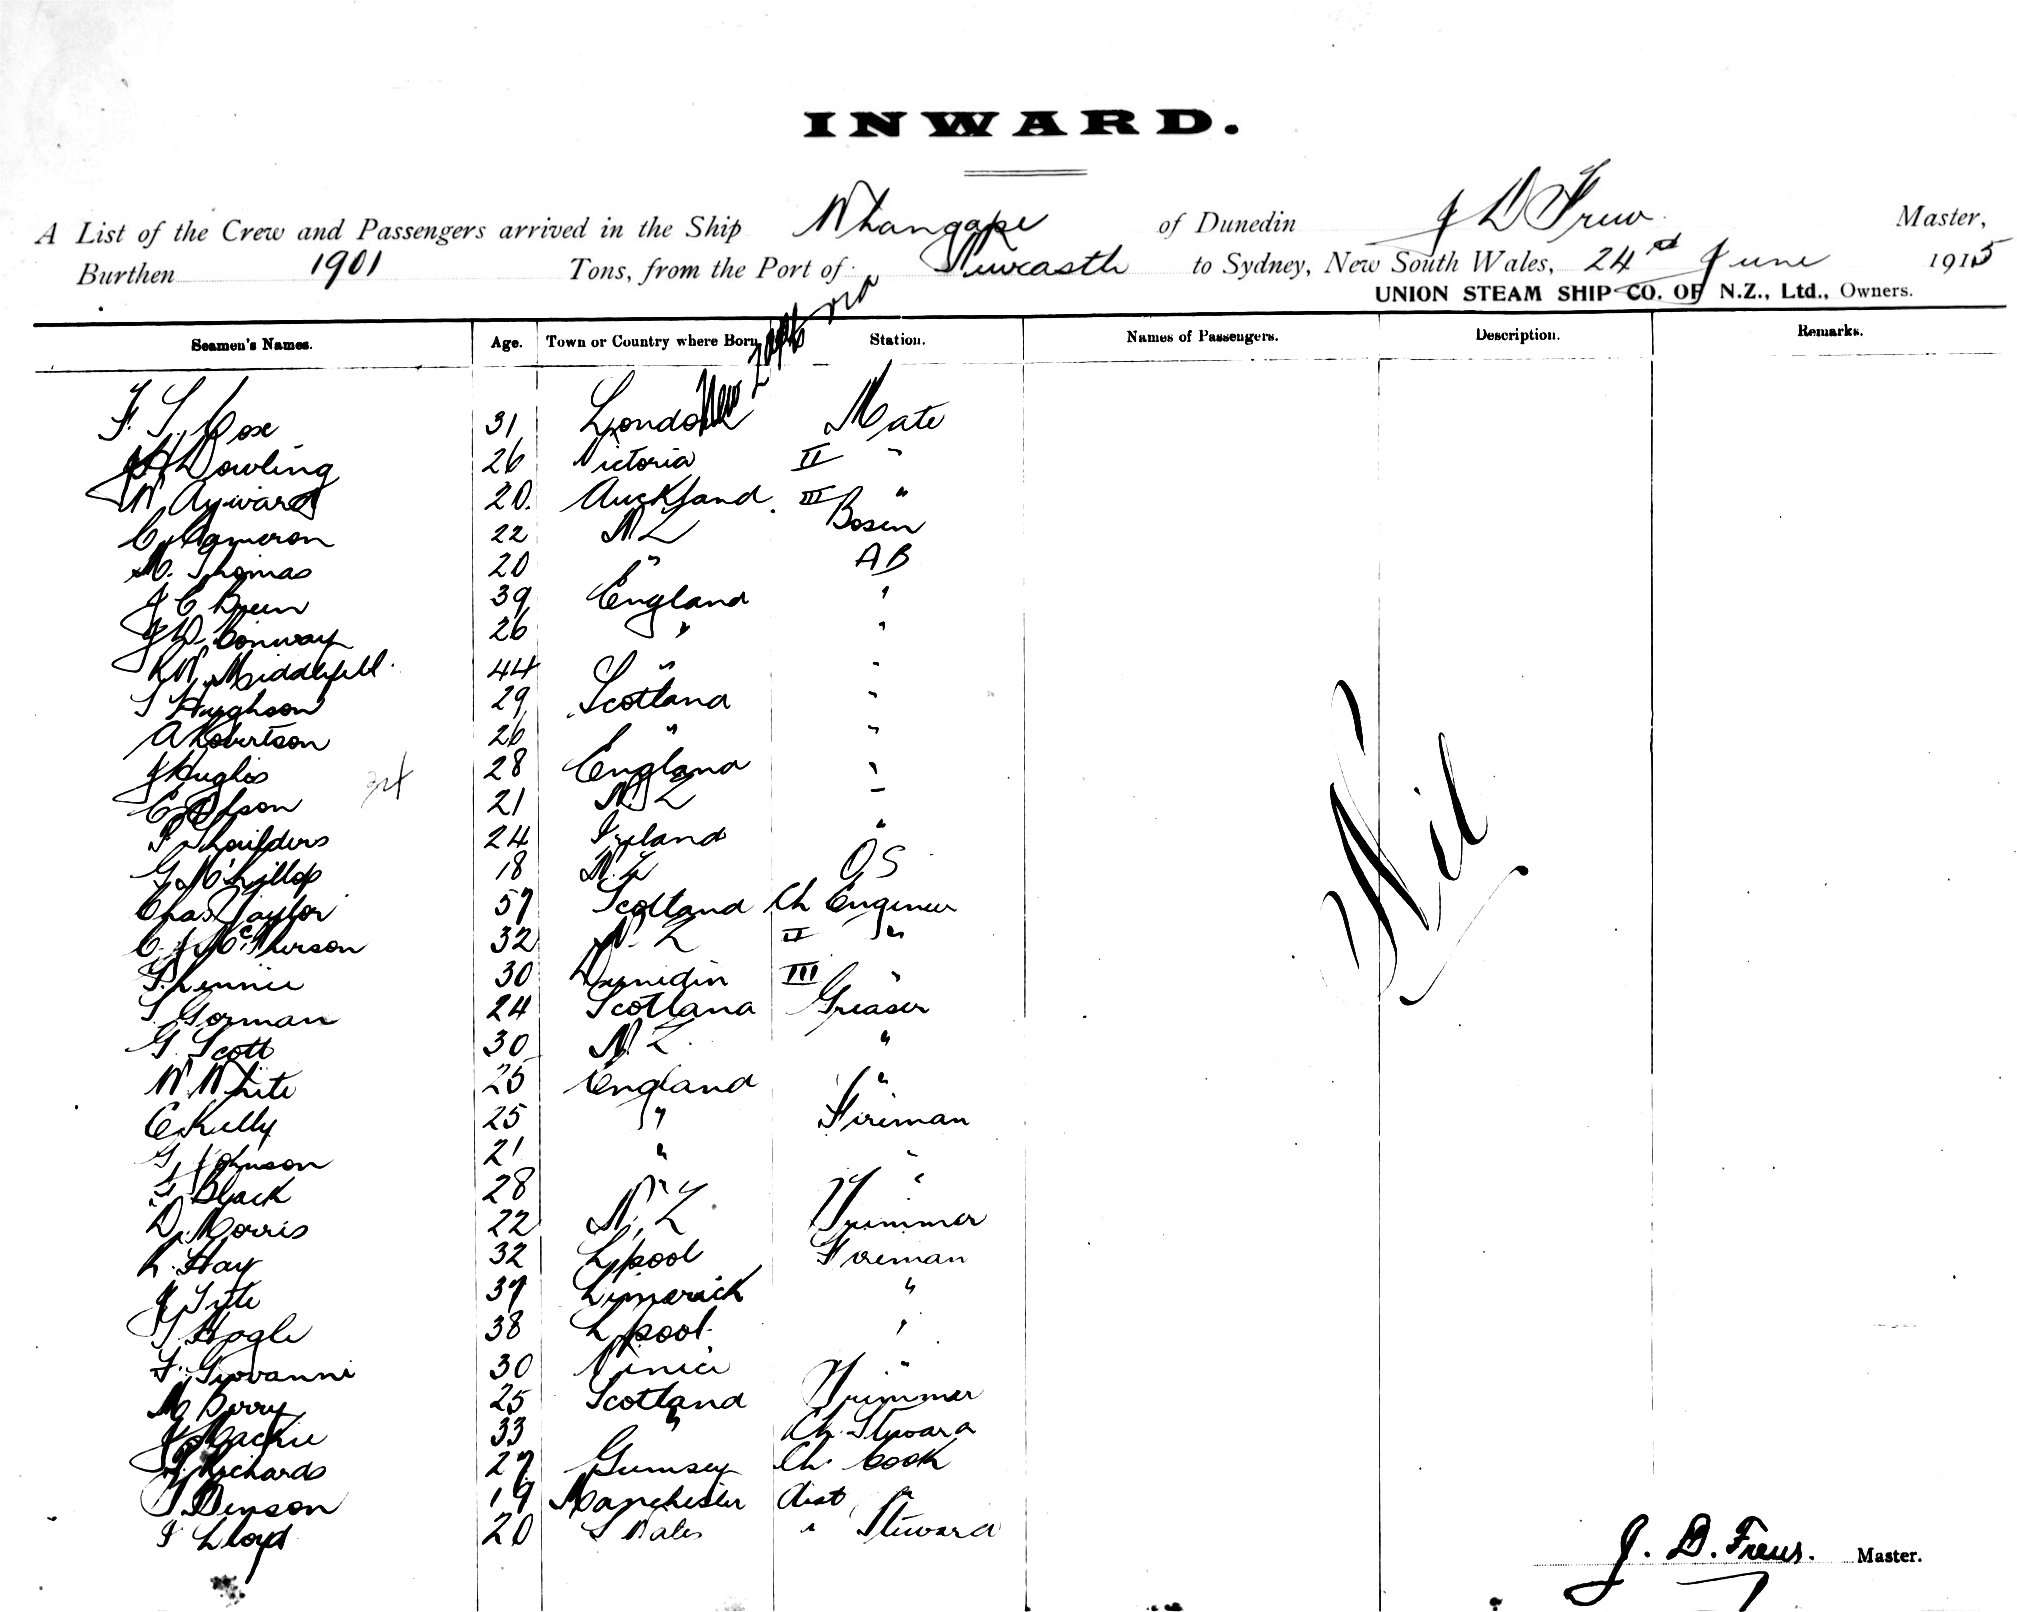 INWARD.
A List of the Crew and Passengers arrived in the Ship Whangape of Dunedin J D Frew Master,
Burthen 1901 Tons, from the Port of Newcastle to Sydney, New South Wales, 24 June 1915
UNION STEAM SHIP CO. OF N.Z., Ltd., Owners.
Seamen's Names. Age. Town or Country where Born Station. Names of Passengers. Description. Remarks.
F. S. Cose 31 London Mate
J H Dowling 26 Victoria II "
W Ayward 20. Auckland III "
C Cameron 22 N Z Bosun
M. Thomas 20 " AB
J C Breen 39 England "
J W Conway 26 " "
R W Middlefell 44 " "
S Hughson 29 Scotland "
A Robertson 26 " "
J Hughes 28 England "
C Olson 21 N. Z "
P Shoulders 24 Ireland "
G McKillop 18 N. Z O S
Chas Taylor 57 Scotland Ch Engineer
C. J McPherson 32 N. Z II "
T. Rennie 30 Dunedin III "
T. Gorman 24 Scotland Greaser
G. Scott 30 N. Z. "
W White 25 England "
C Kelly 25 " Fireman
G Johnson 21 " "
G Black 28 " "
D. Morris 22 N. Z Trimmer
R. Hay 32 L'pool Fireman
J Tite 37 Limerick "
T Hogle 38 L'pool "
F. Giovanni 30 Venice "
M Berry 25 Scotland Trimmer
J Mackie 33 " Ch. Steward
H Richards 27 Guernsey Ch. Cook
S Denson 19 Manchester Asst "
I Lloyd 20 S Wales " Steward
Nil
J. D. Frew. Master.